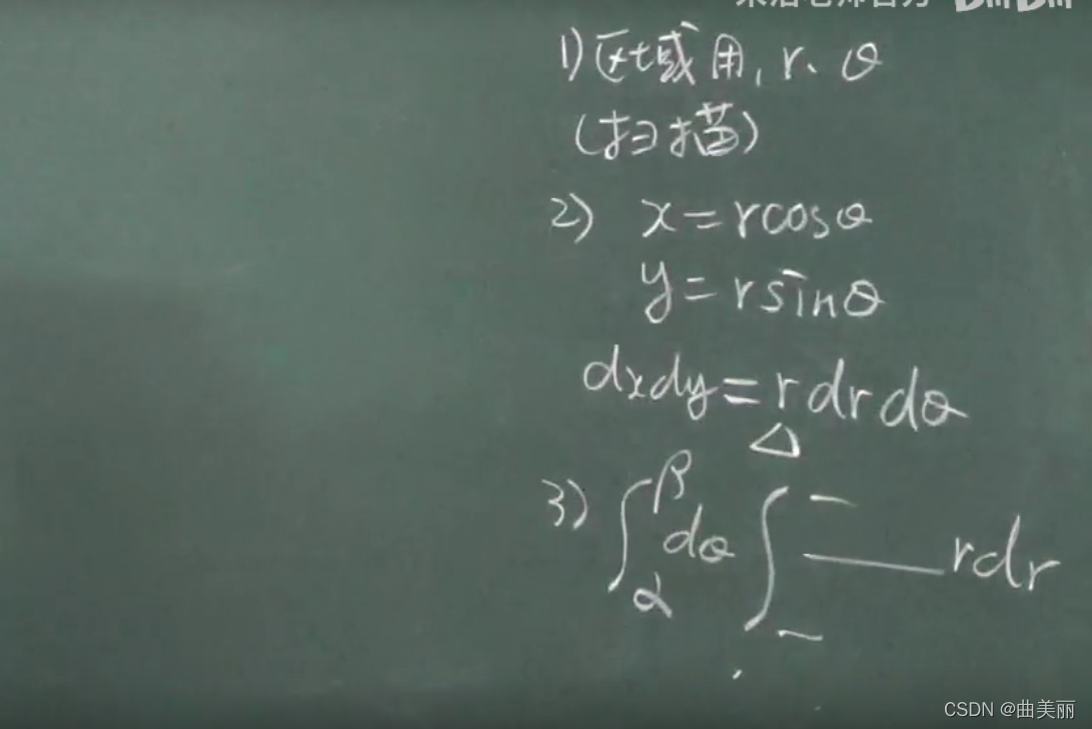 BiliBili
1) 区域用, r、θ
(扫描)
2) x=rcosθ
y=rsinθ
dxdy=rdrdθ
△
3) ∫_α^β dθ ∫_~^~ ___ rdr
CSDN @曲美丽